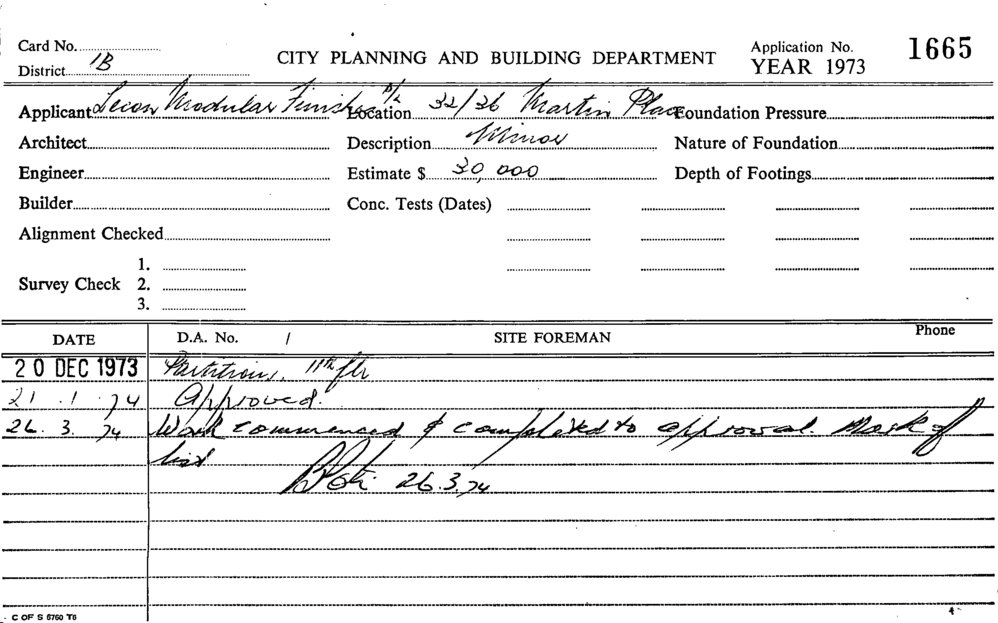 Card No.
District 1B
CITY PLANNING AND BUILDING DEPARTMENT
Application No. 1665
YEAR 1973
Applicant Modular Finishes P/L Location 32/26 Martin Place Foundation Pressure
Architect Description Minor Nature of Foundation
Engineer Estimate $ 30,000 Depth of Footings
Builder Conc. Tests (Dates)
Alignment Checked
Survey Check 1.
2.
3.
DATE D.A. No. / SITE FOREMAN Phone
20 DEC 1973 Partitions, 11th flr
21.1.74 Approved.
26.3.74 Work commenced & completed to approval. Mark off
list
26.3.74
C OF S 6760 T6